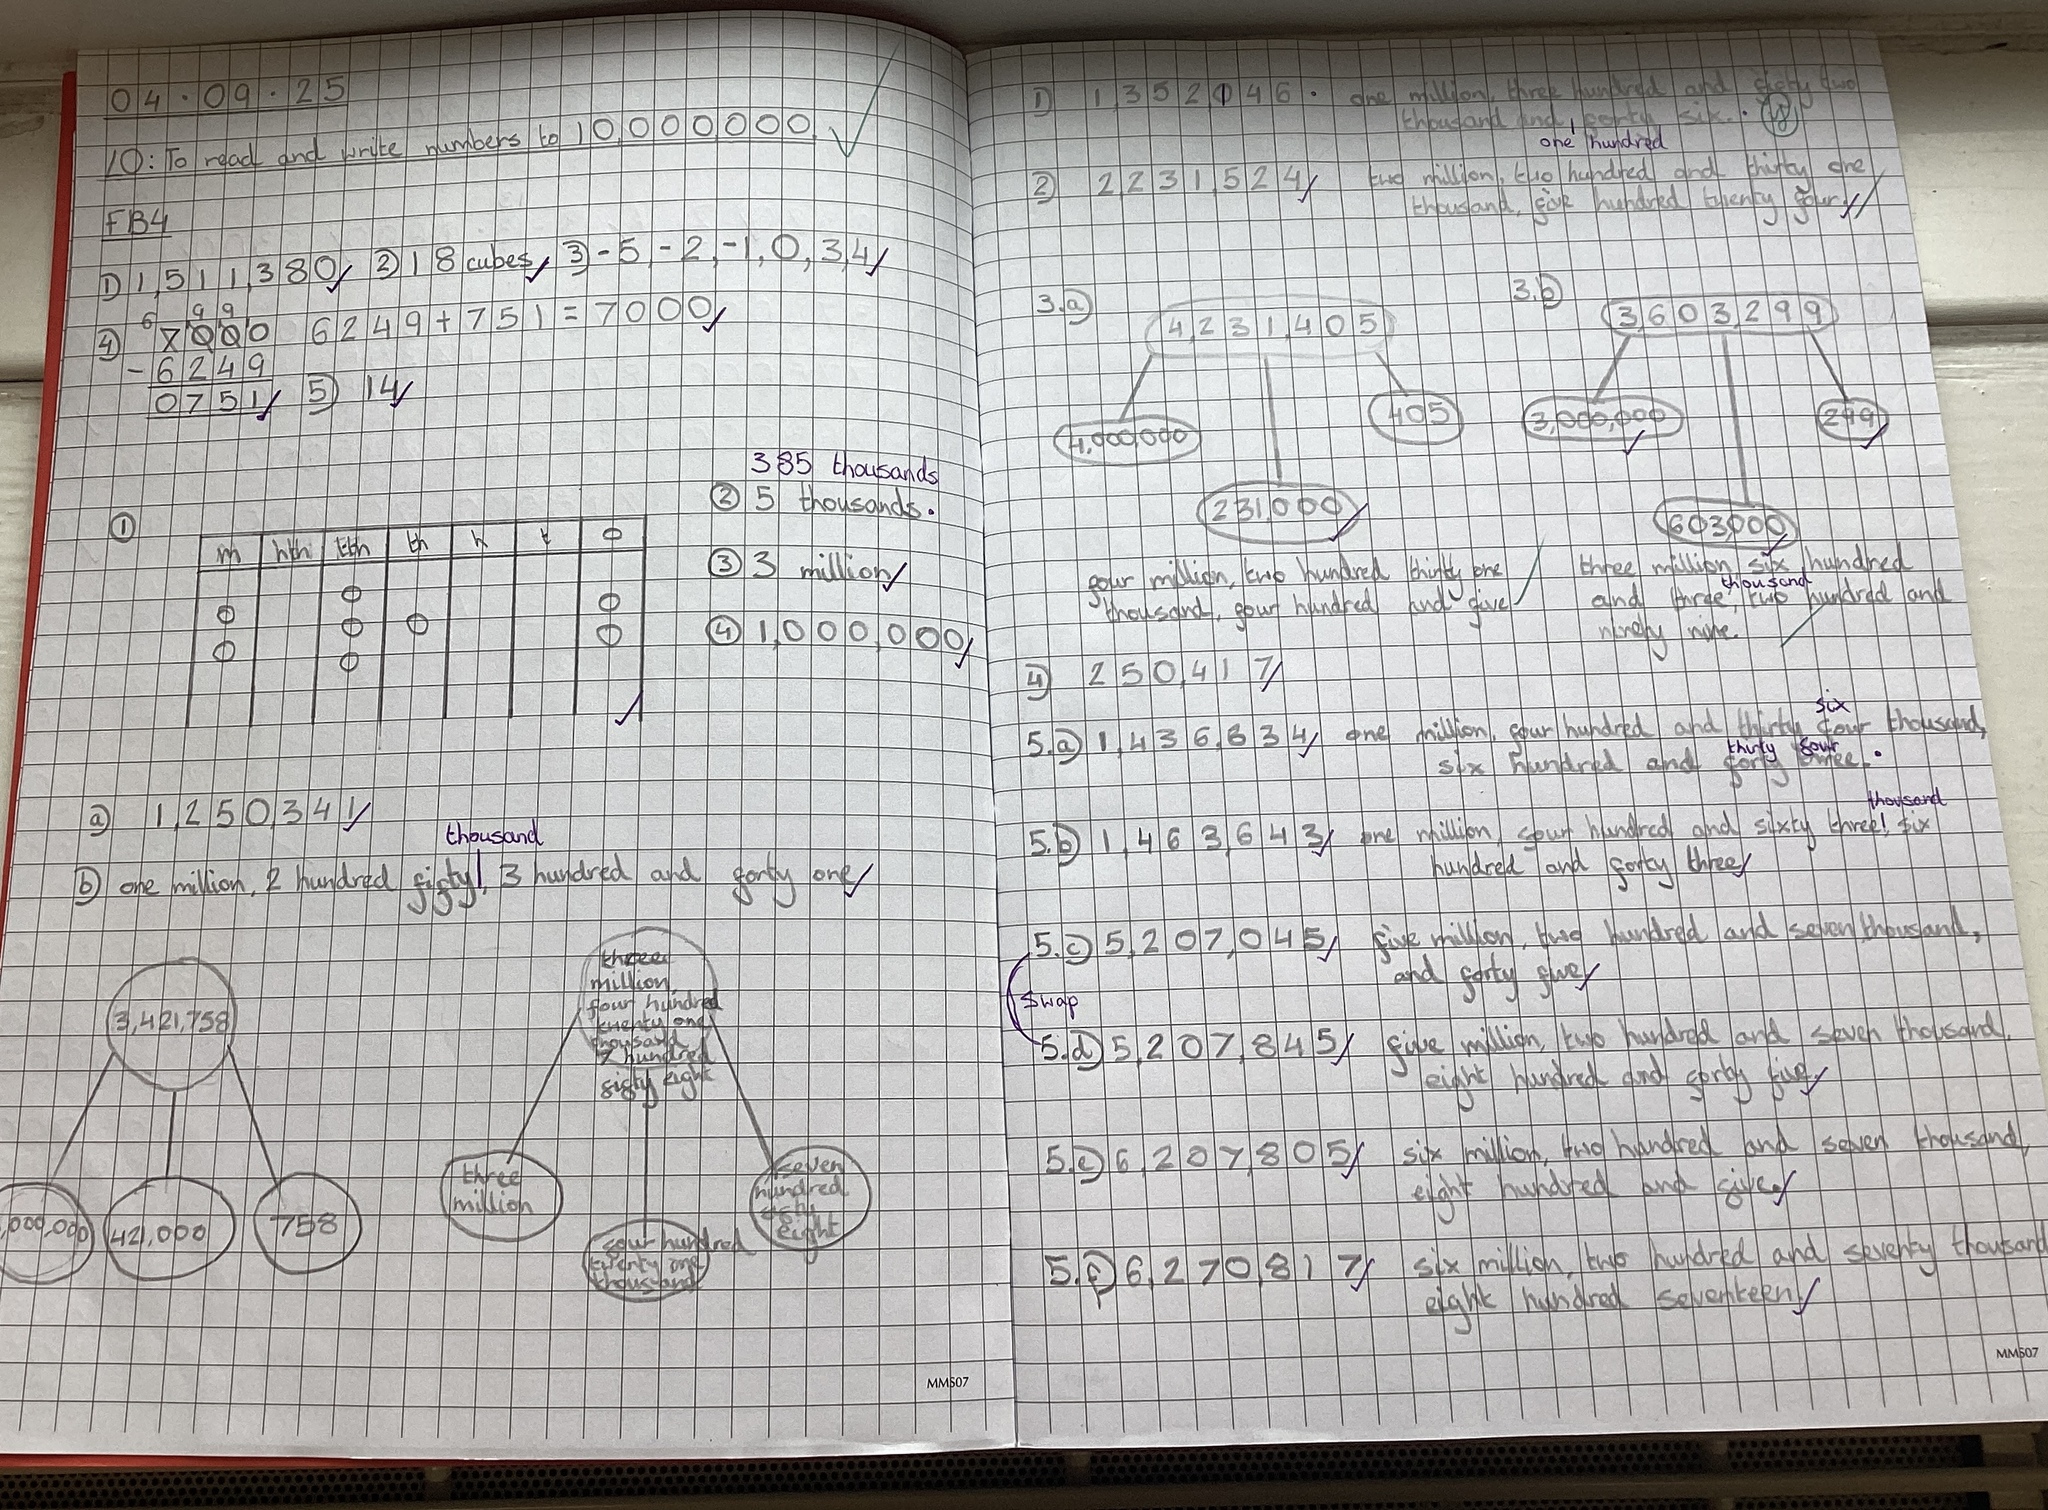 04.09.25
LO: To read and write numbers to 10,000,000.
FB4
1) 1,511,380 2) 18 cubes, 3) -5, -2, -1, 0, 3, 4
6 9 9
4) 7000 6249 + 751 = 7000
- 6249
0751 5) 14
385 thousands
1 2 5 thousands.
m hth tth th h t o
3 3 million
4 1,000,000
a) 1,250,341
thousand
b) one million, 2 hundred fifty, 3 hundred and forty one
3,421,758
,000,000 421,000 758
three
million,
four hundred
twenty one
thousand
7 hundred
fifty eight
three
million
four hundred
twenty one
thousand
seven
hundred
fifty
eight
MMS07
1) 1,352,146. one million, three hundred and fifty two
thousand and, forty six.
one hundred
2) 2,231,524 two million, two hundred and thirty one
thousand, five hundred twenty four
3.a) 4,231,405
4,000,000 405
231,000
four million, two hundred thirty one
thousand, four hundred and five
3.b) 3,603,299
3,000,000 299
603,000
three million, six hundred
thousand
and three, two hundred and
ninety nine.
4) 250,417
six
5.a) 1,436,634 one million, four hundred and thirty four thousand,
thirty four
six hundred and forty three.
thousand
5.b) 1,463,643 one million, four hundred and sixty three, six
hundred and forty three
5.c) 5,207,045 five million, two hundred and seven thousand,
and forty five
swap
5.d) 5,207,845 five million, two hundred and seven thousand,
eight hundred and forty five
5.e) 6,207,805 six million, two hundred and seven thousand,
eight hundred and five
5.f) 6,270,817 six million, two hundred and seventy thousand
eight hundred seventeen
MMS07